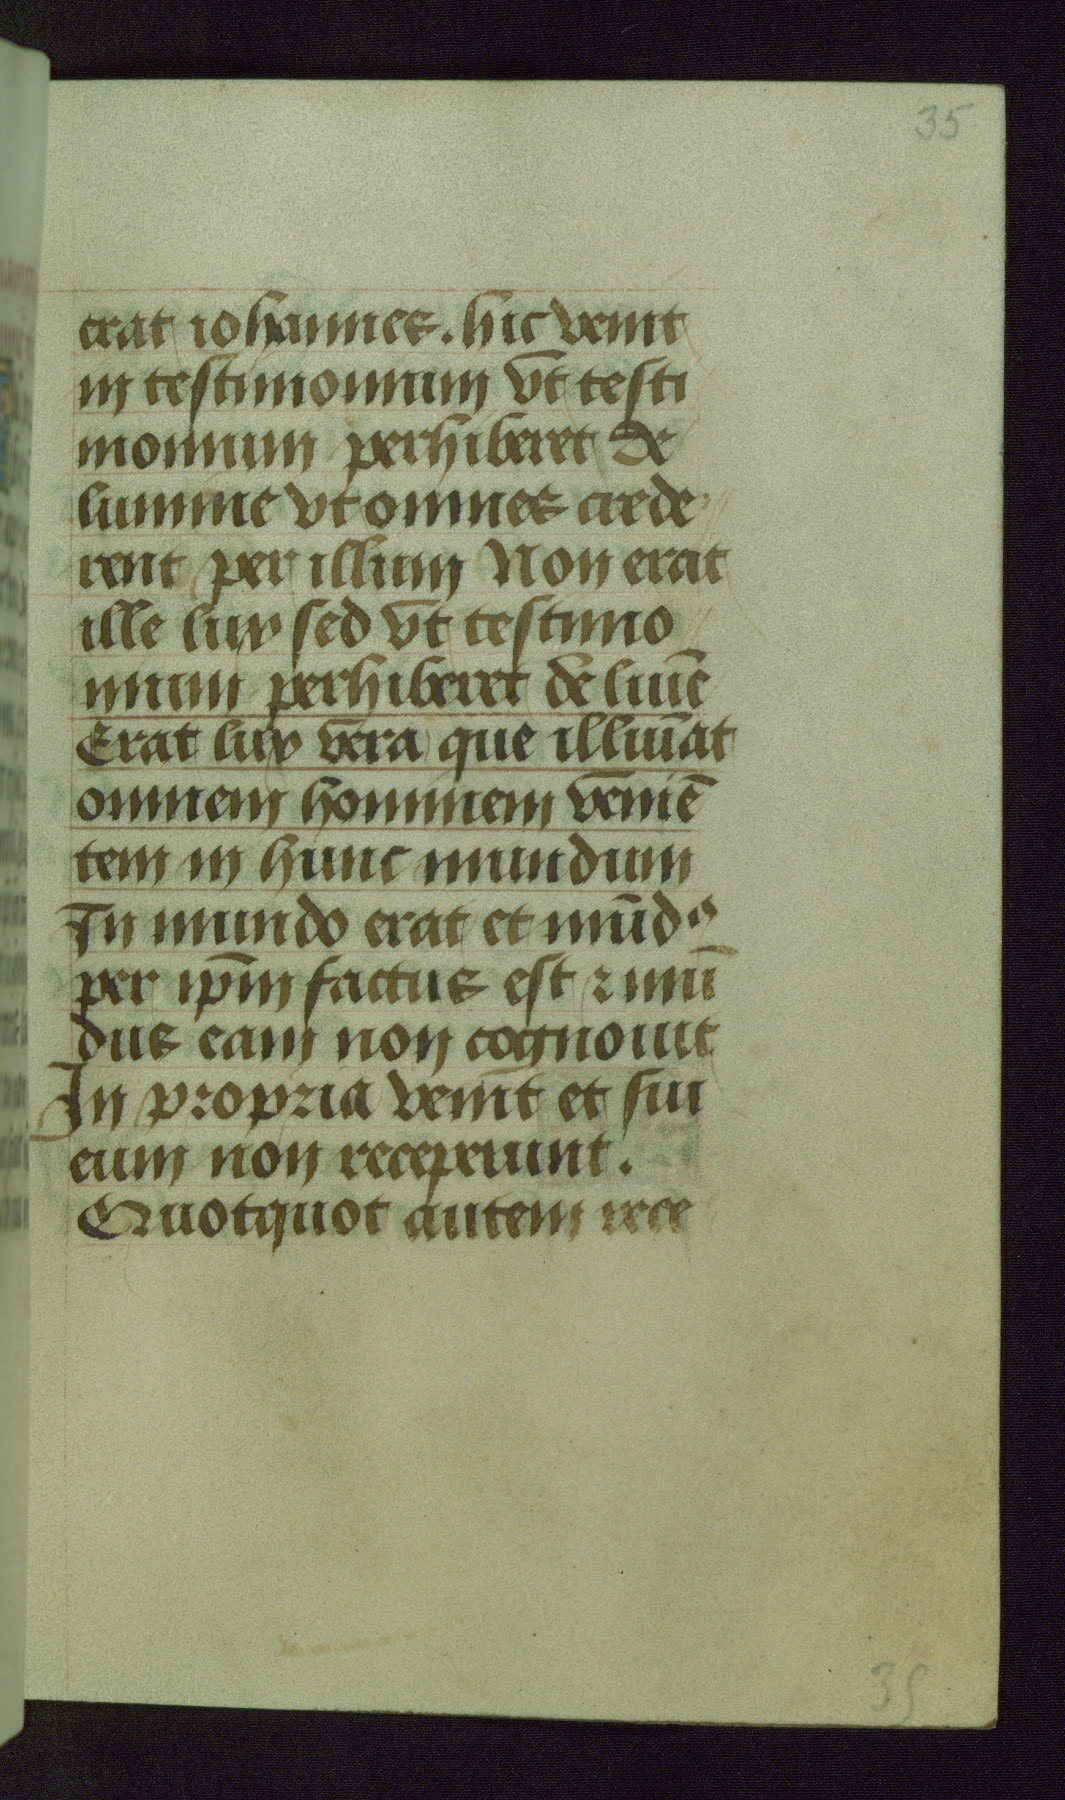 35
erat iohannes. hic venit
in testimonium vt testi
monium perhiberet de
lumine vt omnes crede
rent per illum Non erat
ille lux sed vt testimo
nium perhiberet de lumē
Erat lux vera que illumīat
omnem hominem veniē
tem in hunc mundum
In mundo erat et mūdꝰ
per ip̄m factus est ⁊ mūn
dus eam non cognouit
In propria venit et sui
eum non receperunt.
Quotquot autem rece
35